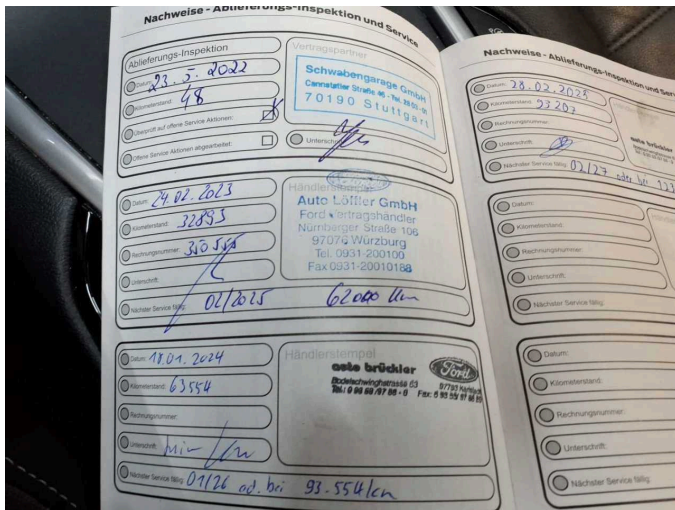 Nachweise - Ablieferungs-Inspektion und Service
Ablieferungs-Inspektion
Datum: 23. 5. 2022
Kilometerstand: 48
Überprüft auf offene Service Aktionen:
Offene Service Aktionen abgearbeitet:
Vertragspartner
Schwabengarage GmbH
Cannstatter Straße 46
70190 Stuttgart
Unterschrift
Datum: 24.02.2023
Kilometerstand: 32893
Rechnungsnummer:
Unterschrift:
Nächster Service fällig: 02/2025 62000 km
Händlerstempel
Auto Löffler GmbH
Ford Vertragshändler
Nürnberger Straße 106
97076 Würzburg
Tel. 0931-200100
Fax 0931-20010188
Datum: 18.01.2024
Kilometerstand: 63554
Rechnungsnummer:
Unterschrift:
Nächster Service fällig: 01/26 od. bei 93.554 km
Händlerstempel
auto brückler
Ford
Bodelschwinghstrasse 63
Nachweise - Ablieferungs-Inspektion und Ser
Datum: 28.02.2025
Kilometerstand: 93207
Rechnungsnummer:
Unterschrift:
Nächster Service fällig: 02/27 oder bei 123
auto brückler
Datum:
Kilometerstand:
Rechnungsnummer:
Unterschrift:
Nächster Service fällig:
Datum:
Kilometerstand:
Rechnungsnummer:
Unterschrift:
Nächster Service fällig: